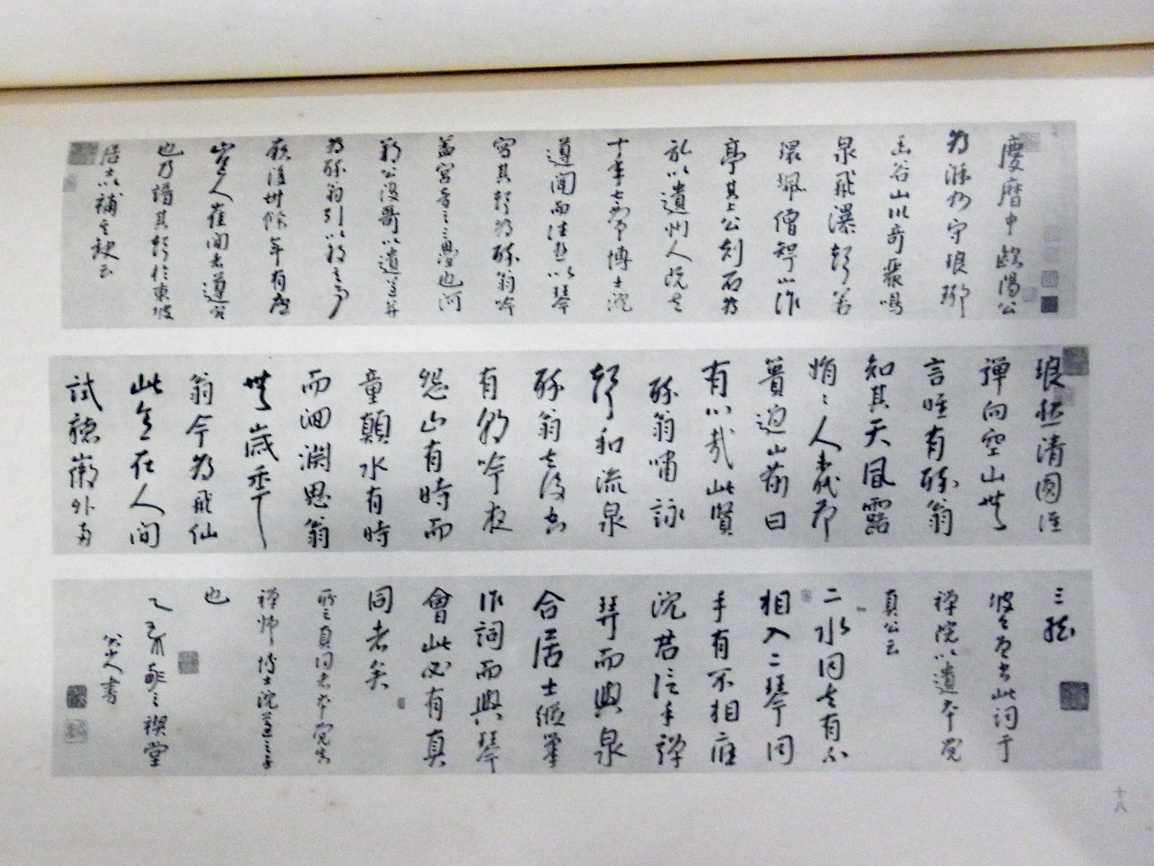 慶曆中歐陽公
為滁州守琅琊
幽谷山川奇麗鳴
泉飛瀑聲若
環珮僧智仙作
亭其上公刻石為
於以遺州人既去
十年太常博士沈
遵聞而往愁以琴
寫其聲為醉翁吟
蓋宮聲之三疊也河
朔公沒哥以遺遵并
為醉翁引以敘之

厥後卅餘年有廬
山道人崔閑者遵客
也乃譜其聲於東坡
居士以補之詞云
琅然清圜誰
彈向空山無
言唯有醉翁
知其天風露
娟娟人未眠荷
蕢過山前曰
有心哉此賢
醉翁嘯詠
聲和流泉
醉翁去後空
有朝吟夜
怨山有時而
童顛水有時
而洄淵思翁
無歲年
翁今為飛仙
此意在人間
試聽徽外兩
三絃
坡父書此詞于
禪院以遺本覺
真公云
二水同去有不
相入二琴同
手有不相應
沈君信手彈
琴而與泉
合居士縱筆
作詞而與琴
會此必有真
同者矣
所云真同者本覺
禪師博士沈遵之子
也
禊堂
八大山人書
十八